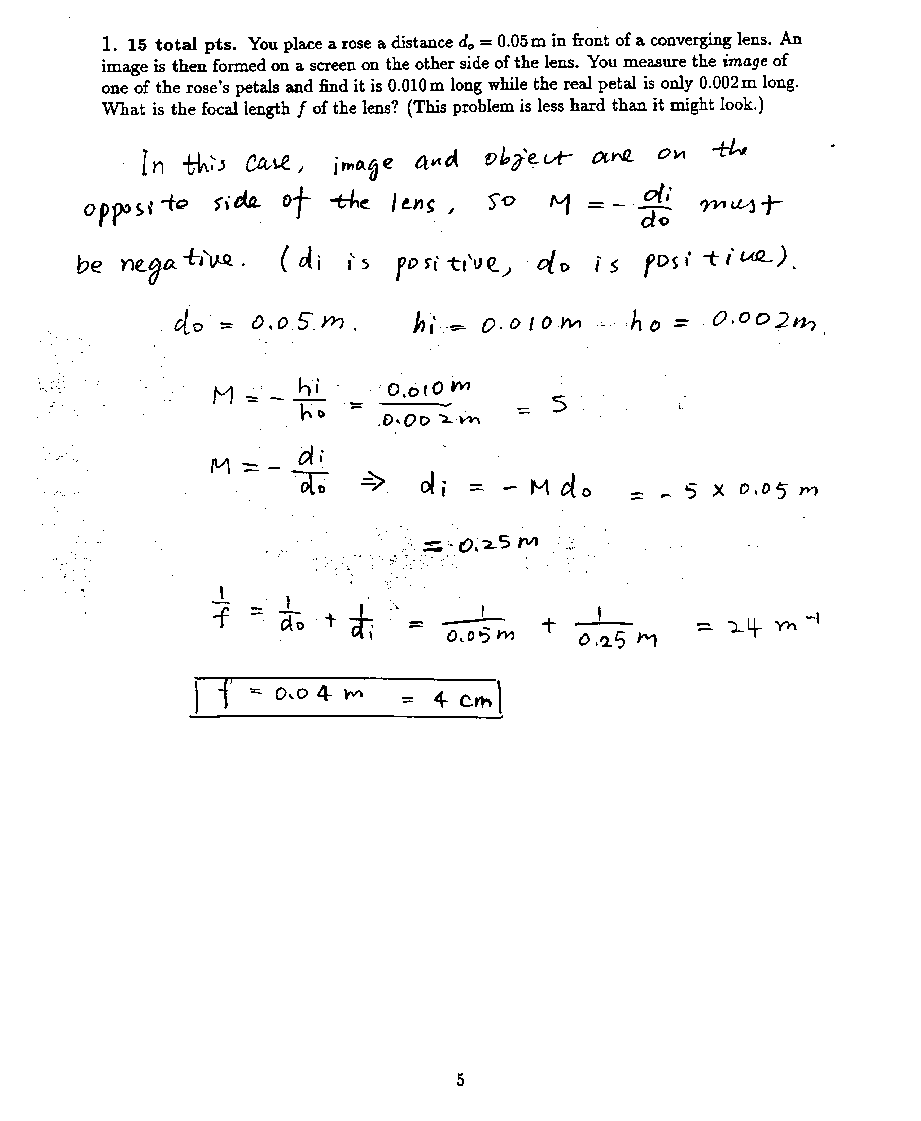 1. 15 total pts. You place a rose a distance dₒ = 0.05 m in front of a converging lens. An
image is then formed on a screen on the other side of the lens. You measure the image of
one of the rose's petals and find it is 0.010 m long while the real petal is only 0.002 m long.
What is the focal length f of the lens? (This problem is less hard than it might look.)
In this case, image and object are on the
opposite side of the lens, so M = - di/do must
be negative. (di is positive, do is positive).
do = 0.05 m. hi = 0.010 m ho = 0.002 m.
M = - hi/ho = 0.010 m / 0.002 m = 5
M = - di/do ⇒ di = - M do = - 5 x 0.05 m
= 0.25 m
1/f = 1/do + 1/di = 1/0.05 m + 1/0.25 m = 24 m⁻¹
f = 0.04 m = 4 cm
5